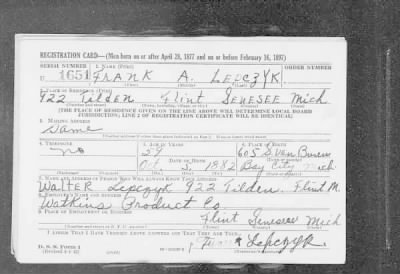 REGISTRATION CARD—(Men born on or after April 28, 1877 and on or before February 16, 1897)
SERIAL NUMBER 1. NAME (Print) ORDER NUMBER
U 1651 FRANK A. LEPCZYK
(First) (Middle) (Last)
2. PLACE OF RESIDENCE (Print)
922 Tilden Flint GENESEE Mich
(Number and street) (Town, township, village, or city) (County) (State)
[THE PLACE OF RESIDENCE GIVEN ON THE LINE ABOVE WILL DETERMINE LOCAL BOARD
JURISDICTION; LINE 2 OF REGISTRATION CERTIFICATE WILL BE IDENTICAL]
3. MAILING ADDRESS
Same
4. TELEPHONE 5. AGE IN YEARS 6. PLACE OF BIRTH
no 605 S. Van Buren
DATE OF BIRTH Bay City
Oct 3, 1882 Mich
7. NAME AND ADDRESS OF PERSON WHO WILL ALWAYS KNOW YOUR ADDRESS
Walter Lepczyk 922 Tilden. Flint M.
8. EMPLOYER'S NAME AND ADDRESS
Watkins Product Co
9. PLACE OF EMPLOYMENT OR BUSINESS
Flint Genesee Mich
I AFFIRM THAT I HAVE VERIFIED ABOVE ANSWERS AND THAT THEY ARE TRUE.
D. S. S. Form 1
Lepczyk